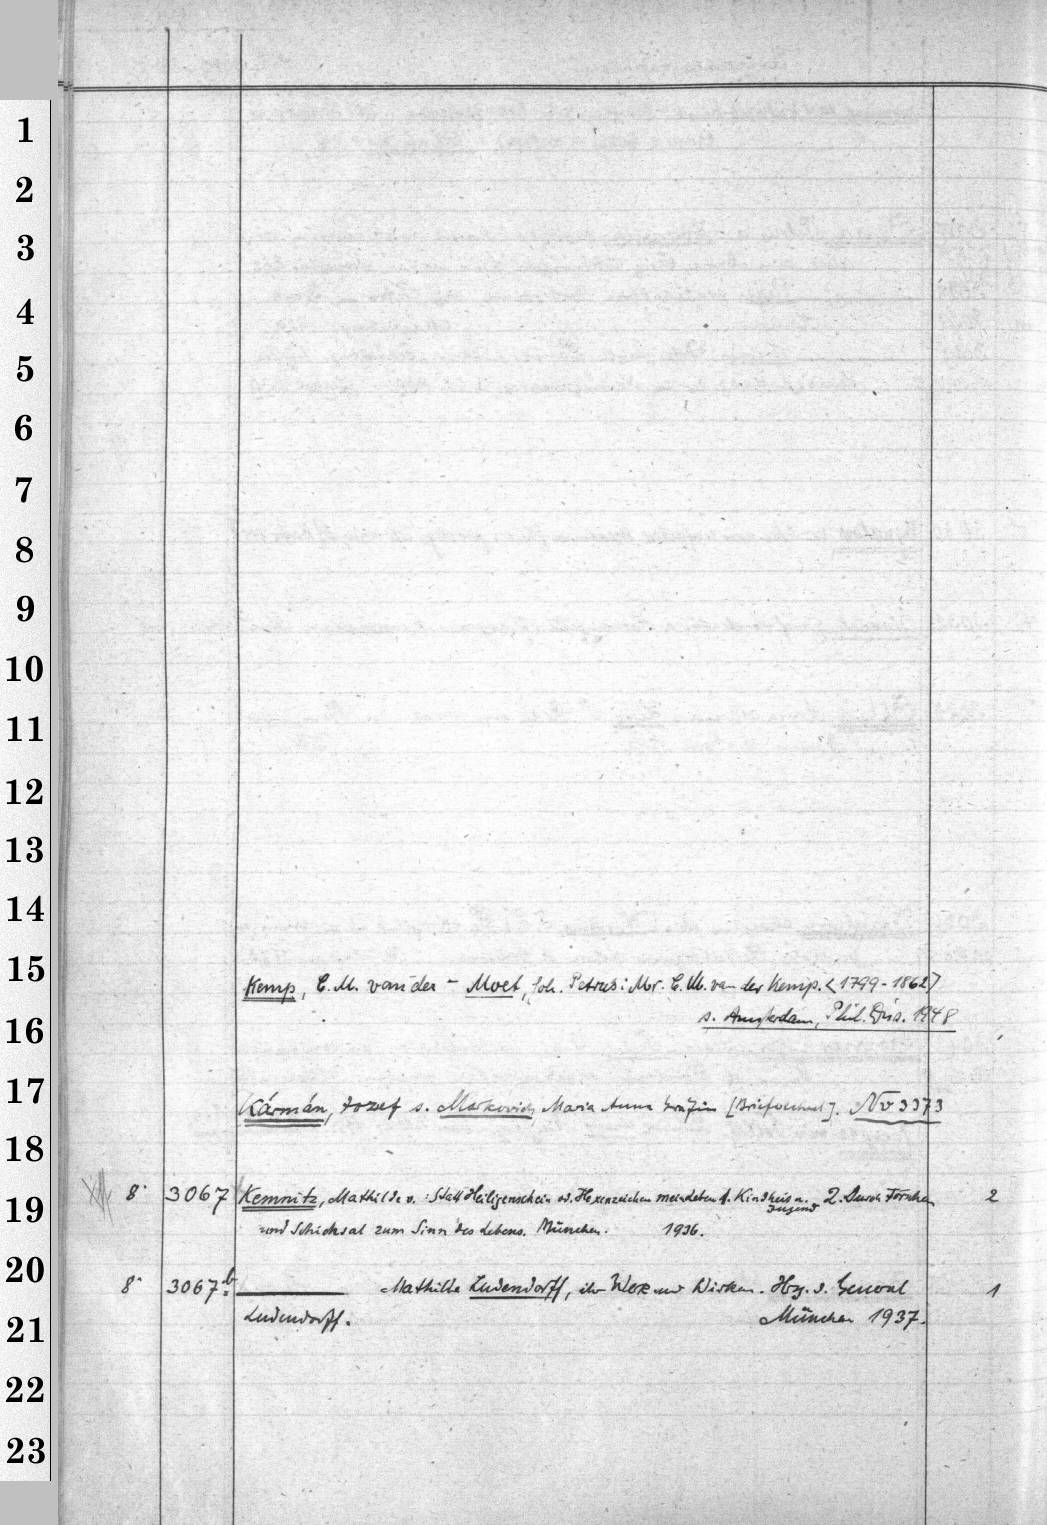 1
2
3
4
5
6
7
8
9
10
11
12
13
14
15
Kemp, C.M. van der – Moet, Joh. Petrus: Mr. C.M. van der Kemp. <1799-1862>
16
s. Amsterdam, Phil. Diss. 1948
17
Kármán, Jozef s. Markovics, Maria Anna [Briefwechsel]. Nv 3373
18
8° 3067 Kemnitz, Mathilde v.: Statt Heiligenschein od. Hexenzeichen mein Leben 1. Kindheit u. Jugend 2. Durch Forschen 2
19
und Schicksal zum Sinn des Lebens. München. 1936.
20
8° 3067b Mathilde Ludendorff, ihr Werk und Wirken. Hrg. v. General 1
21
Ludendorff. München 1937.
22
23